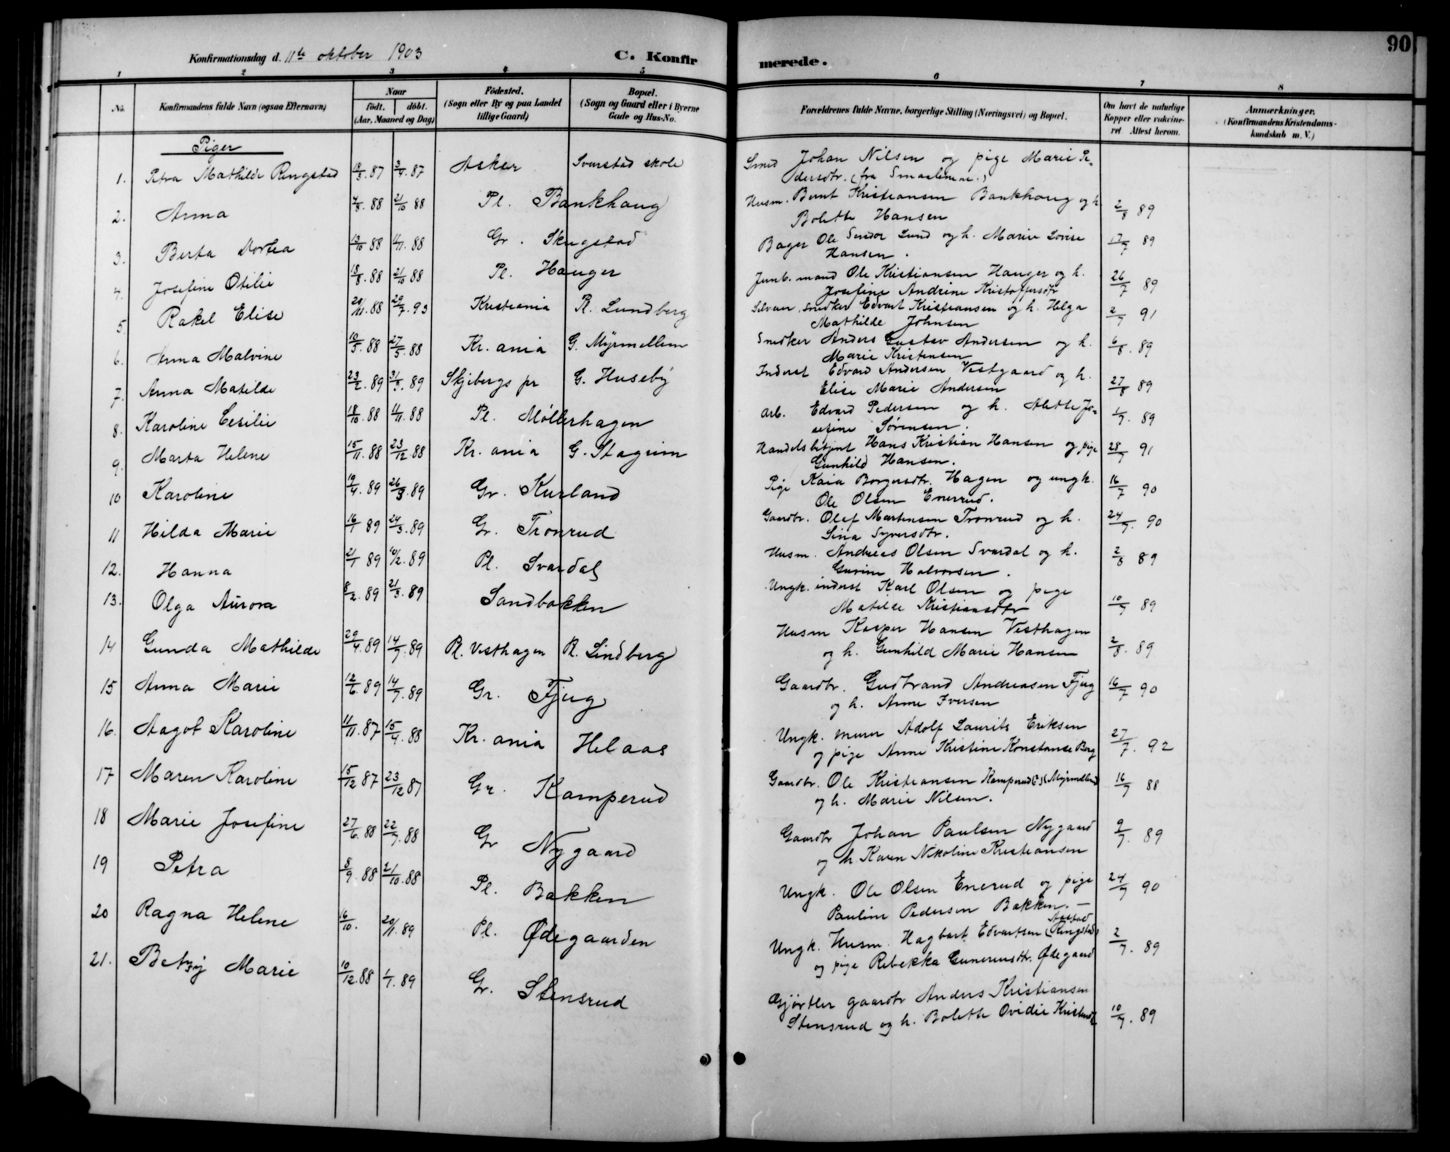 90
Konfirmationsdag d. 11te oktober 1903
C. Konfirmerede.
1 2 3 4 5 6 7 8
No.
Konfirmandens fulde Navn (ogsaa Efternavn)
Naar
født. døbt.
(Aar, Maaned og Dag)
Fødested.
(Sogn eller By og paa Landet
tillige Gaard)
Bopæl.
(Sogn og Gaard eller i Byerne
Gade og Hus-No.
Forældrenes fulde Navne, borgerlige Stilling (Næringsvei) og Bopæl.
Om havt de naturlige
Kopper eller vakcineret
Attest herom.
Anmærkninger.
(Konfirmandens Kristendomskundskab
m. V.)
Piger
1. Petra Mathilde Ringstad 87 87 Asker Svarstad skole Smed Johan Nilsen og pige Marie Pedersdtr. (fra Smaalenene.)
2. Anna 88 21/10 88 Pl. Bankhaug Husm. Bernt Kristiansen Bankhaug og h. Bolette Hansen 2/8 89
3. Berta Dortea 88 88 Gr. Skugstad Bager Ole Lund og h. Marie Lovise Hansen. 89
4. Josefine Otilie 88 21/10 88 Pl. Hauger Jernb. mand Ole Kristiansen Hauger og h. Josefine Andrine Kristoffersdtr 26/7 89
5 Rakel Elise 88 93 Kristiania R. Lundberg Snedker Edvart Kristiansen og h. Helga Mathilde Johnsen 91
6. Anna Malvine 88 27/5 88 Kr.ania G. Myrmellem Snedker Anders Gustav Andersen og h. Marie Kristensen 6/8. 89
7. Anna Matilde 23/2. 89 31/3. 89 Skjebergs pr G. Huseby Inderst Edvard Andersen Vestgaard og h. Elise Marie Andersen 27/8 89
8. Karoline Cesilie 18/10 88 88 Pl. Møllerhagen Arb. Edvard Pedersen og h. Alette Josefine Sørensen. 89
9. Marta Helene 15/11. 88 23/12 88 Kr.ania G. Stagrim Handelsbetjent Hans Kristian Hansen og pige Gunhild Hansen. 28/7 91
10 Karoline 89 26/3. 89 Gr. Kurland Pige Kaia Borgersdtr. Hagen og ungk. Ole Olsen Enerud. 16/7 90
11 Hilda Marie 16/1 89 24/3. 89 Gr. Tronrud Gaardbr. Olef Martensen Tronrud og h. Lina Syversdtr. 24/7. 90
12. Hanna 21/1 89 89 Pl. Svardal Husm. Andreas Olsen Svardal og h. Gurine Halvorsen. 2/8 89
13. Olga Aurora 8/2. 89 21/3. 89 Sandbakken Ungk. inderst Karl Olsen og pige Matilde Kristiansdtr 10/7 89
14 Gunda Mathilde 29/4. 89 14/7. 89 R. Vesthagen R. Lindberg Husm Kasper Hansen Vesthagen og h. Gunhild Marie Hansen 2/8. 89
15 Anna Marie 12/6 89 14/7. 89 Gr. Fjug Gaardbr. Gudbrand Andreasen Fjug og h. Anne Iversen 16/7 90
16. Aagot Karoline 11/11. 87 15/4 88 Kr.ania Helaas Ungk. murer Adolf Laurits Eriksen og pige Anne Kristine Konstanse Berg 27/7. 92
17 Maren Karoline 15/12 87 23/12 87 Gr. Kamperud Gaardbr. Ole Kristiansen Kamperud og h. Marie Nilsen. 16/7 88
18 Marie Josefine 27/6. 88 22/7. 88 Gr Nygaard Gaardbr Johan Paulsen Nygaard og h Karen Nikoline Kristiansen 9/7. 89
19 Petra 88 21/10. 88 Pl. Bakken Ungk. Ole Olsen Enerud og pige Pauline Pedersen Bakken. 24/7 90
20 Ragna Helene 16/10. 89 Pl. Ødegaarden Ungk. Husm. Hagbart Edvartsen og pige Rebekka Gunerusdtr. Ødegaard 2/7. 89
21. Betsy Marie 10/12 88 1/1. 89 Gr. Stensrud Gjørtler gaardbr Anders Kristiansen Stensrud og h. Bolette Ovidie 10/7. 89